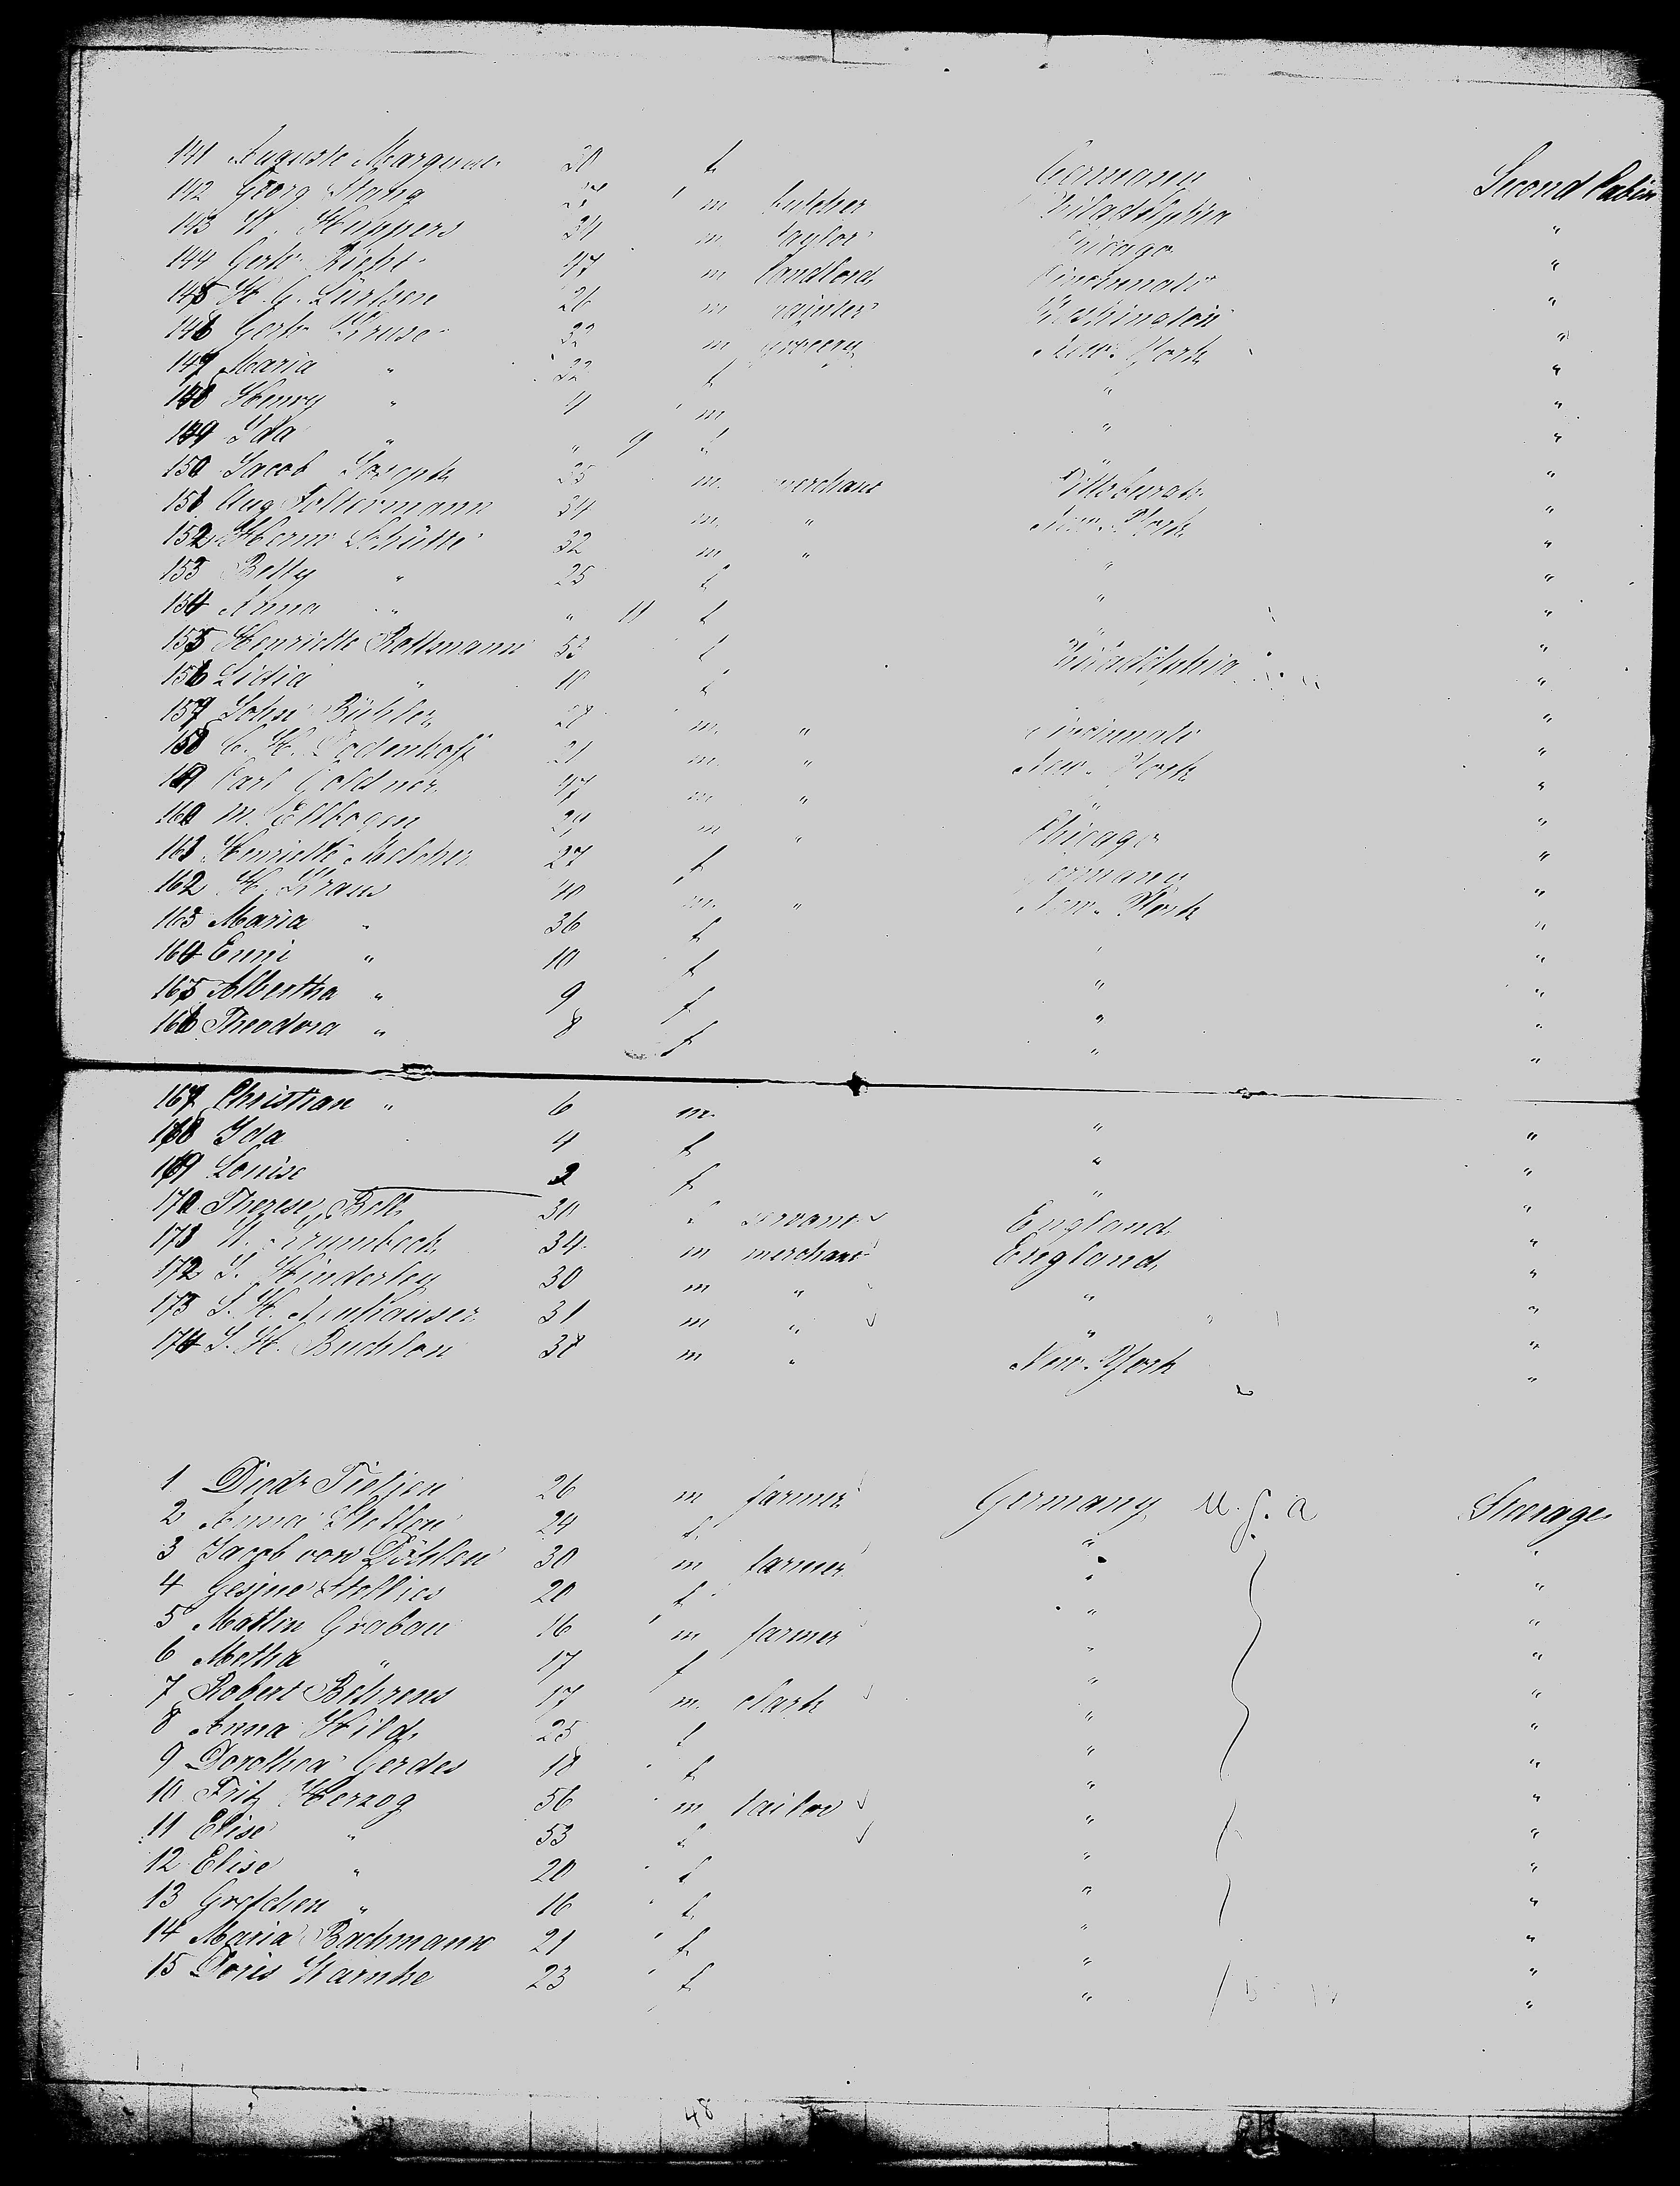 141 Auguste 30 f Germany Second Cabin
142 Georg Stang m butcher Philadelphia "
143 W. Huppers 34 m taylor Chicago "
144 Gerh. 47 m landlord Cincinnati "
145 H. G. Lürssen 26 m painter Washington "
146 Gerh. Kruse 32 m grocery New-York "
147 Maria " 32 f " "
148 Henry " 4 m " "
149 Ida " " 9 f " "
150 Jacob Joseph 35 m. merchant Pittsburgh "
151 Aug. Soltermann 34 m. " New-York "
152 Herm. Schütte 32 m " " "
153 Betty " 25 f " "
154 Anna " " 11 f " "
155 Henriette Rottmann 53 f Philadelphia "
156 Lidia " 10 f "
157 John Bühler 28 m. " Cincinnati "
158 C. H. Bödenhoff 21 m. " New-York "
159 Carl Goldner 47 m " " "
160 M. Ellbogen 29 m " Chicago "
161 Henriette Melcher 27 f Germany "
162 H. Kraus 40 m. " New-York "
163 Maria " 36 f " "
164 Enni " 10 f " "
165 Albertha " 9 f " "
166 Theodora " 8 f " "
167 Christian " 6 m. " "
168 Ida 4 f " "
169 Louise 2 f " "
170 Therese Bell 30 f servant England "
171 W. Krumbeck 34 m merchant England "
172 J. Hinderley 30 m " " "
173 J. H. Neuhauser 31 m " " "
174 J. H. Buchlou 38 m " New-York "
1 Diedr Tietjen 26 m farmer Germany U.S.A Steerage
2 Anna 24 f " "
3 Jacob von Döhlen 30 m farmer " "
4 Gesine Stelljes 20 f " "
5 Martin Grabau 16 m farmer " "
6 Metha " 17 f " "
7 Robert Behrens 17 m. clark " "
8 Anna Hild 25 f " "
9 Dorothea Gerdes 18 f " "
10 Fritz Herzog 56 m tailor " "
11 Elise " 53 f " "
12 Elise " 20 f " "
13 Gretchen " 16 f " "
14 Maria Bachmann 21 f " "
15 Doris Warnke 23 f " "
48